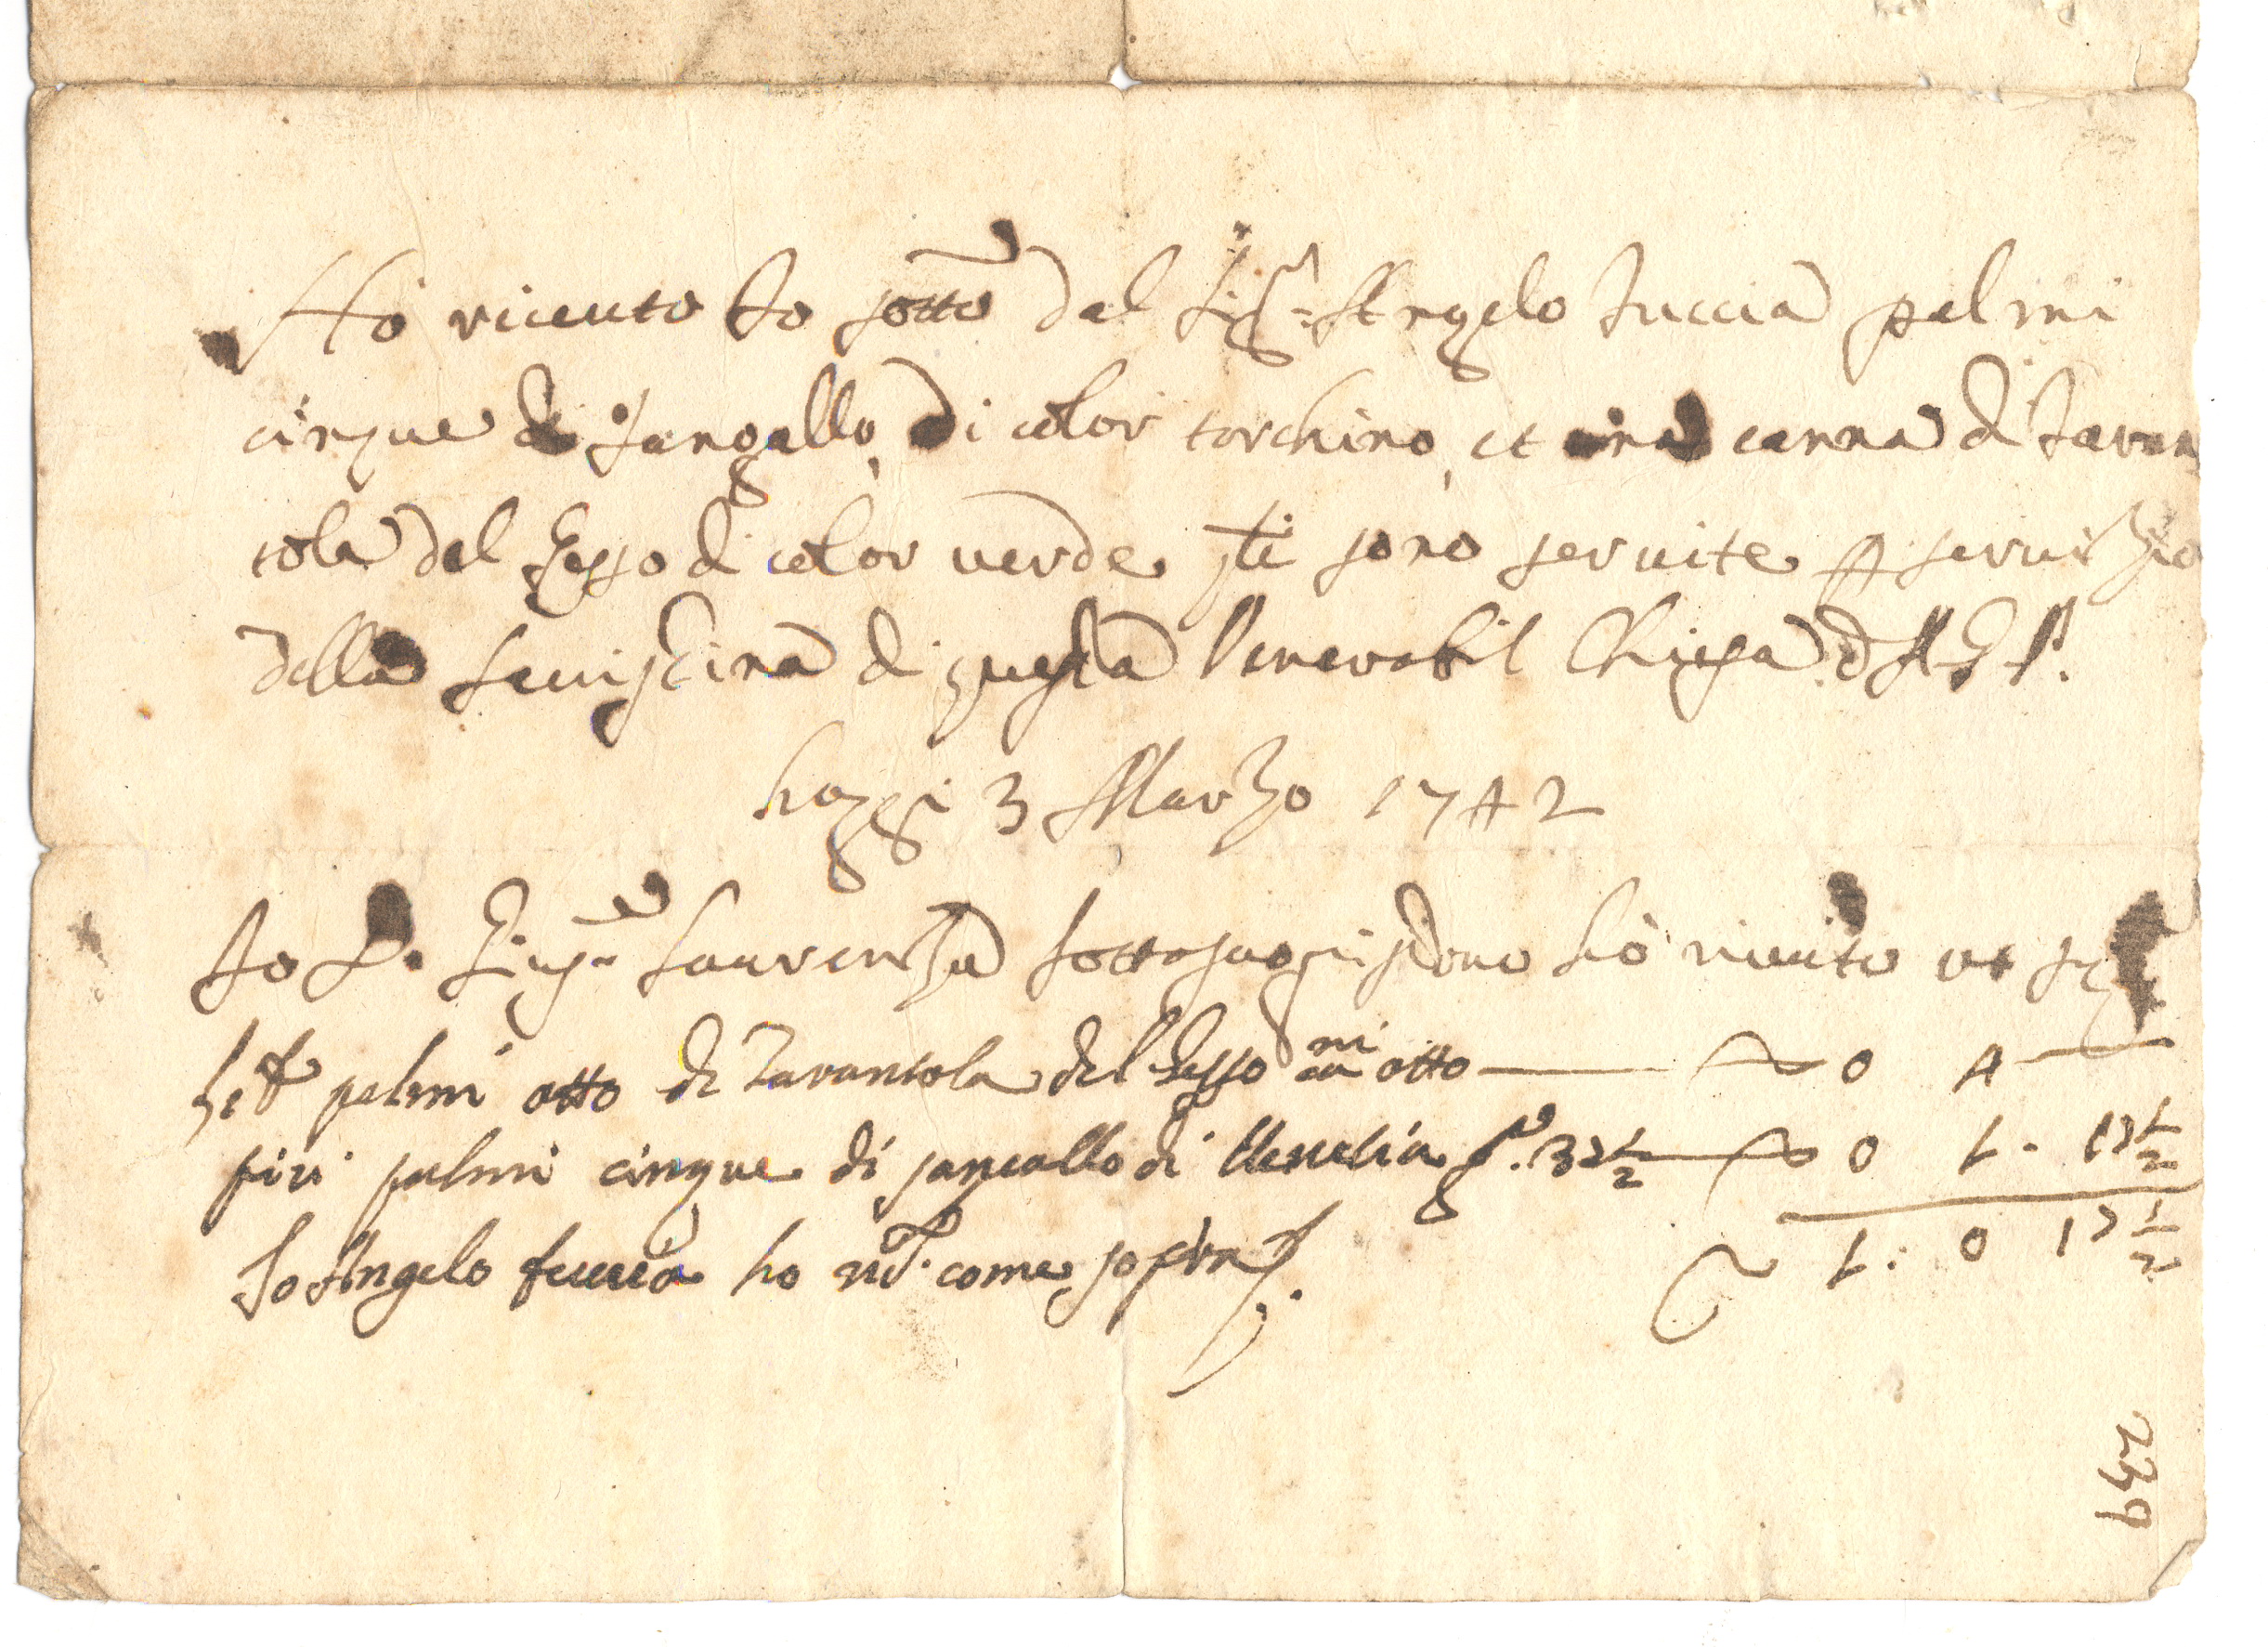 Hò riceuto Io sotto dal Sig.r Angelo Tuccia palmi
cinque di Sangallo, di color torchino, et una canna di Taran
tola del Gesso di color verde, q.ti sono servite A servizio
della Sacristina di questa Venerabil Chiesa d A G P.
hoggi 3 Marzo 1742
Io D. Laurenza sottoscrivo hò riceuto ut
palmi otto di Tarantola del Gesso otto 0 4
piu palmi cinque di sancallo di Venetia g.a 32 1/2 0 1 . 12 1/2
Io Angelo ho come sopra 1 : 0 12 1/2
239